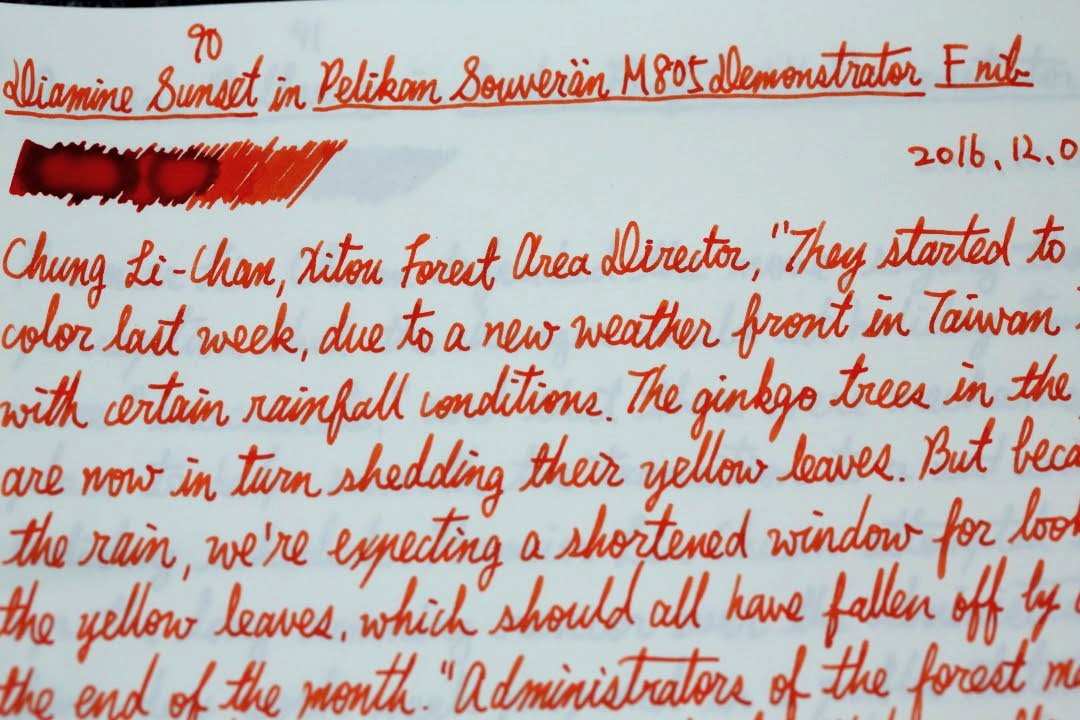 90
Diamine Sunset in Pelikan Souverän M805 Demonstrator F nib
2016.12.0
Chung Li-Chan, Xitou Forest Area Director, "They started to
color last week, due to a new weather front in Taiwan
with certain rainfall conditions. The ginkgo trees in the
are now in turn shedding their yellow leaves. But beca
the rain, we're expecting a shortened window for look
the yellow leaves, which should all have fallen off by
the end of the month. "Administrators of the forest